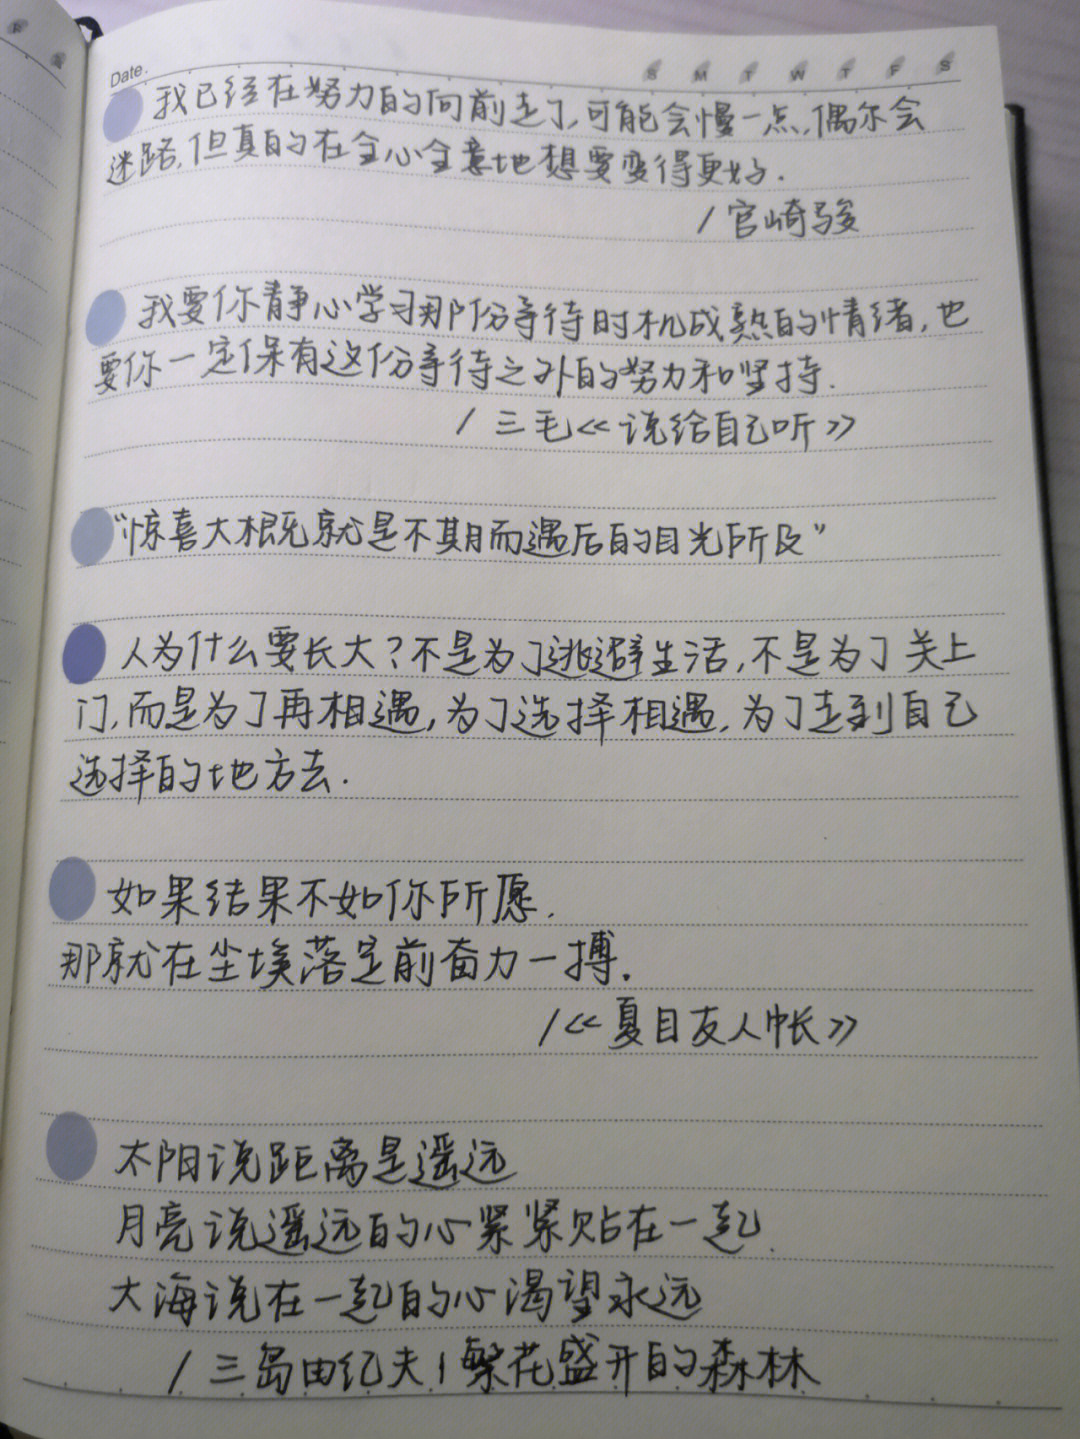 Date.
S M T W T F S
我已经在努力的向前走了,可能会慢一点,偶尔会
迷路,但真的在全心全意地想要变得更好.
/宫崎骏
我要你静心学习那份等待时机成熟的情绪,也
要你一定保有这份等待之外的努力和坚持.
/三毛《说给自己听》
“惊喜大概就是不期而遇后的目光所及”
人为什么要长大?不是为了逃避生活,不是为了关上
门,而是为了再相遇,为了选择相遇,为了走到自己
选择的地方去.
如果结果不如你所愿.
那就在尘埃落定前奋力一搏.
/《夏目友人帐》
太阳说距离是遥远
月亮说遥远的心紧紧贴在一起.
大海说在一起的心渴望永远
/三岛由纪夫/繁花盛开的森林